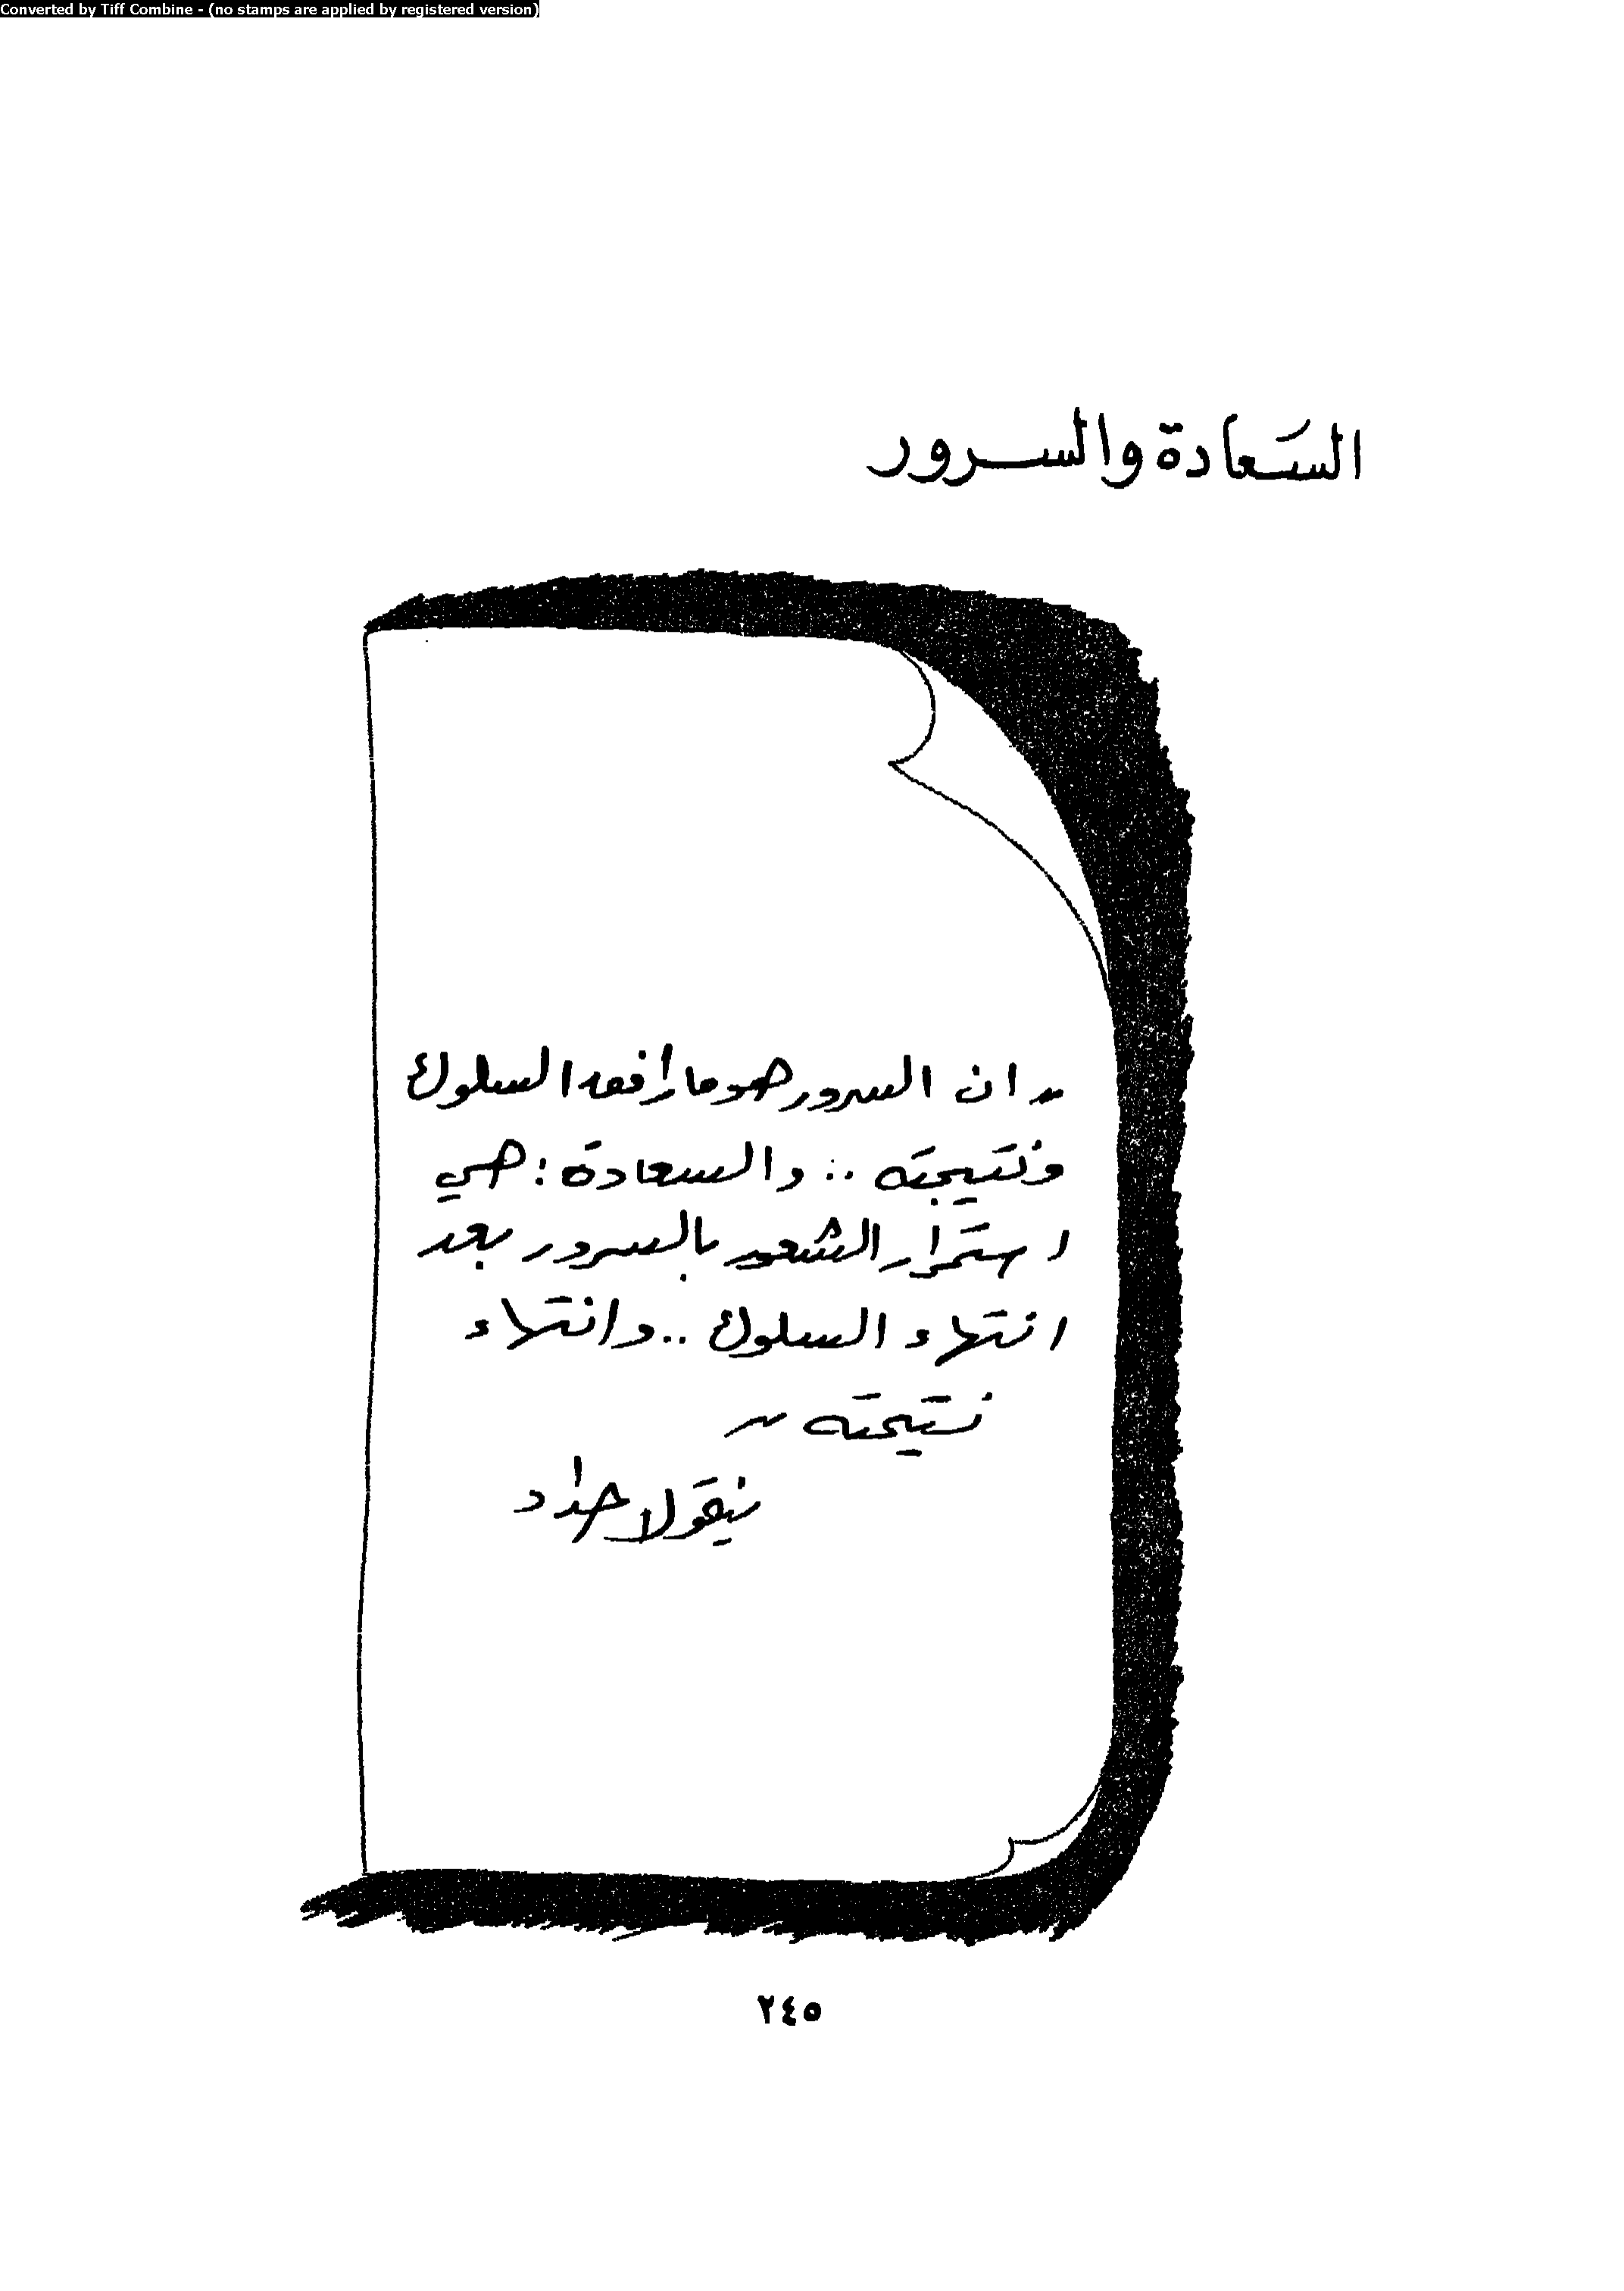 Converted by Tiff Combine - (no stamps are applied by registered version)
السَعادة والسرور
" ان السرور هو ما رافقه السلوك
ونتيجته .. والسعادة : هي
استمرار الشعور بالسرور بعد
انتهاء السلوك .. وانتهاء
نتيجته "
نيقولا حداد
٢٤٥